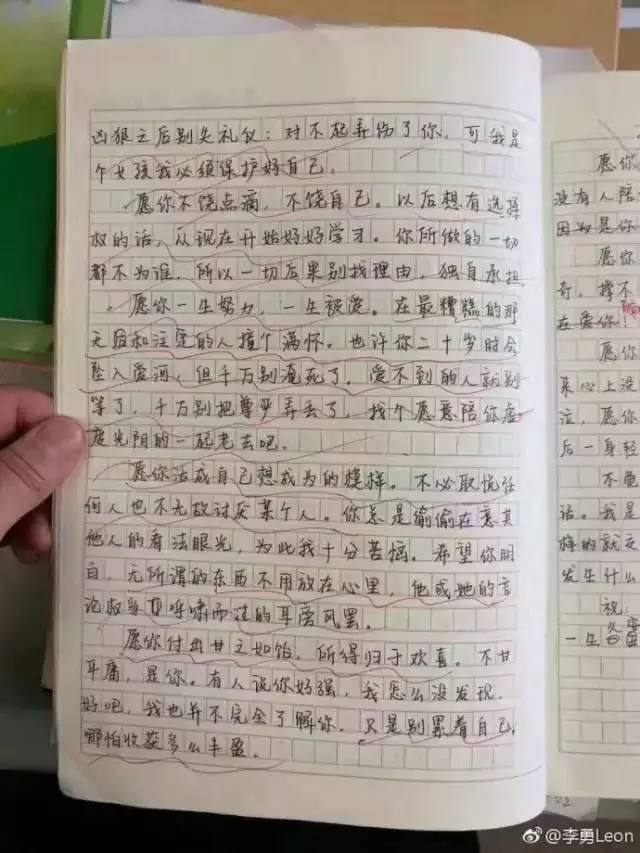 凶狠之后别失礼仪：对不起弄伤了你，可我是
个女孩我必须保护好自己。
愿你不饶点病，不饶自己。以后想有选择
权的话，从现在开始好好学习。你所做的一切
都不为谁，所以一切后果别找理由，独自承担
愿你一生努力，一生被爱。在最糟糕的那
天恰和注定的人撞个满怀。也许你二十岁时会
坠入爱河，但千万别淹死了，爱不到的人就别
等了，千万别把尊严弄丢了，找个愿意陪你虚
度光阴的一起老去吧。
愿你活成自己想成为的模样。不必取悦任
何人也不无故讨厌某个人。你总是偷偷在意其
他人的看法眼光，为此我十分苦恼。希望你明
白，无所谓的东西不用放在心里，他或她的言
论权当呼啸而过的耳旁风罢。
愿你付出甘之如饴，所得归于欢喜。不甘
平庸，是你。有人说你好强，我怎么没发现，
好吧，我也并不完全了解你，只是别累着自己，
哪怕收获多么丰盈。
愿你
没有人陪
因为是你
愿你
奇，撑不
在爱你！
愿你
来心上没
泣，愿你
后一身轻
不要
话。我是
样的就交
发生什么
祝：
一生
@李勇Leon